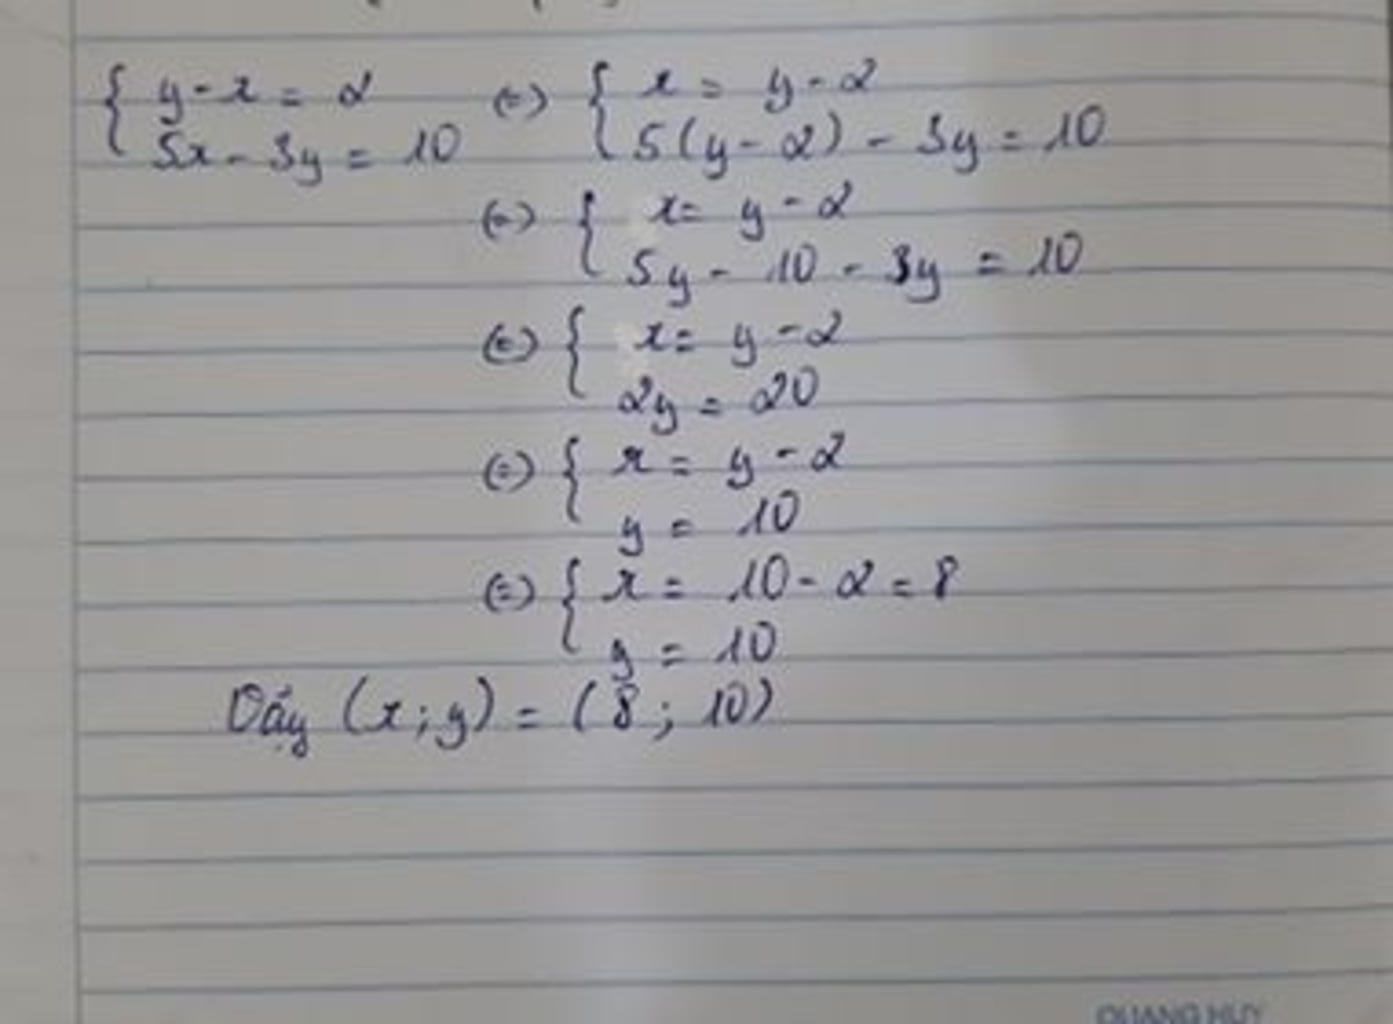 { y - x = 2 (=) { x = y - 2
5x - 3y = 10 5(y - 2) - 3y = 10
(=) { x = y - 2
5y - 10 - 3y = 10
(=) { x = y - 2
2y = 20
(=) { x = y - 2
y = 10
(=) { x = 10 - 2 = 8
y = 10
Vậy (x; y) = (8; 10)
QUANG HUY